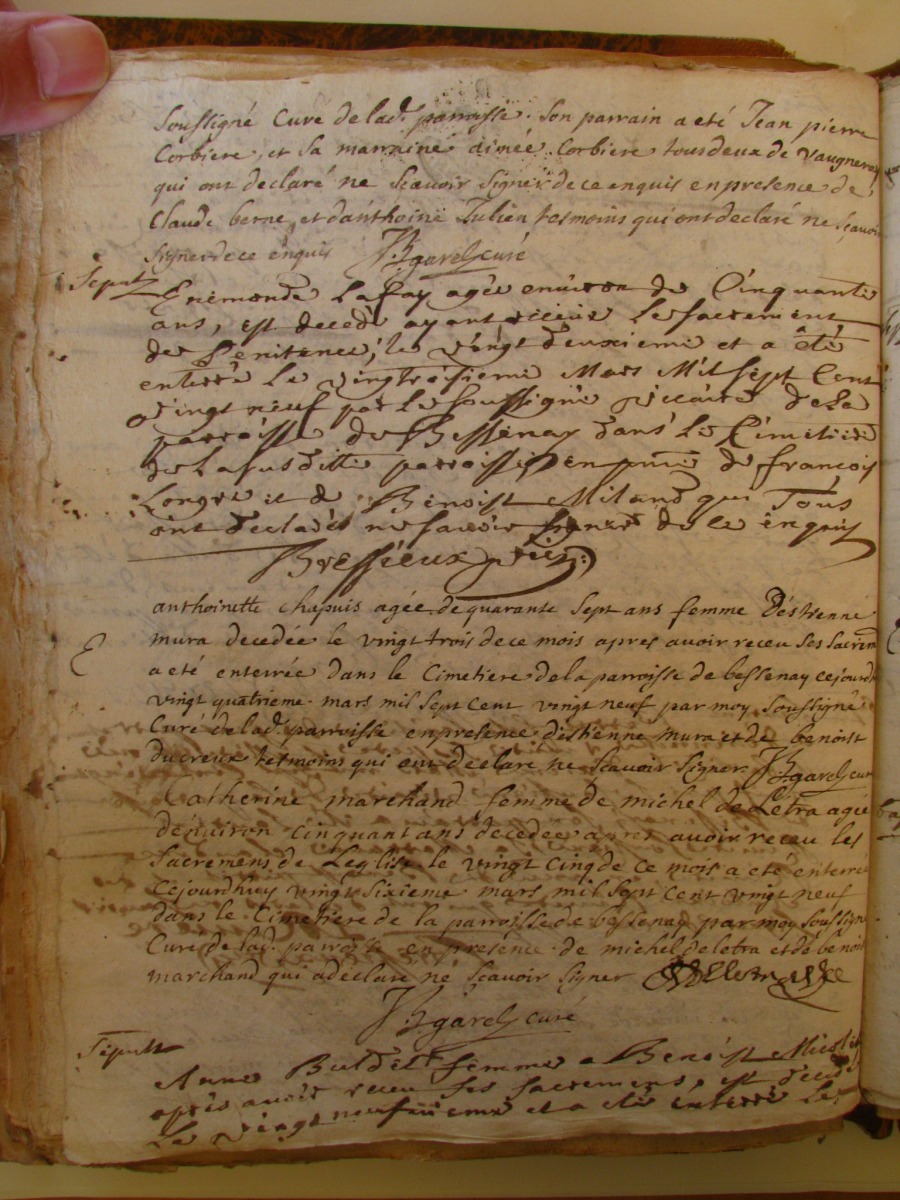 soussigné Curé de lad. parroisse. son parrain a eté Jean pierre
Corbiere, et sa marraine aimée Corbiere tous deux de Vaugneray
qui ont declaré ne sçavoir signer de ce enquis en presence de
Claude berne, et danthoine Julien temoins qui ont declaré ne sçavoir
signer de ce enquis JB garel curé
Sepult
Enemonde Lafay agée environ de Cinquante
ans, est decedé ayant receue le sacrement
de Penitence, le vingt deuxieme et a été
enterré le vingtroisieme Mars Mil sept Cent
vingt neuf par le soussigné viccaire de la
parroisse de Bessenay dans le Cimetiere
de la susditte parroisse en de francois
et de Benoist Miland qui Tous
ont declarés ne savoir signer de ce enquis
Bressieux
anthoinette chapuis agée de quarante sept ans femme d'estienne
mura decedée le vingt trois de ce mois apres avoir receu ses sacrem
a eté enterrée dans le Cimetiere de la parroisse de bessenay cejourd
vingt quatrieme mars mil sept cent vingt neuf par moy soussigné
Curé de lad. parroisse en presence d'estienne mura et de benoist
ducreux temoins qui ont declaré ne sçavoir signer JB garel curé
Catherine marchand femme de michel de Létra agée
denviron cinquant ans decedée apres avoir receu les
sacremens de Leglise le vingt cinq de ce mois a eté enterrée
cejourdhuy vingt sixieme mars mil sept cent vingt neuf
dans le Cimetiere de la parroisse de bessenay par moy soussigné
Curé de lad. parroisse en presence de michel de letra et de benoist
marchand qui a declaré ne sçavoir signer
JB garel curé
Sepult
Anne femme a Benoist
après avoir receu ses sacremens, est decedé
le vingt neufvieme et a été enterré le